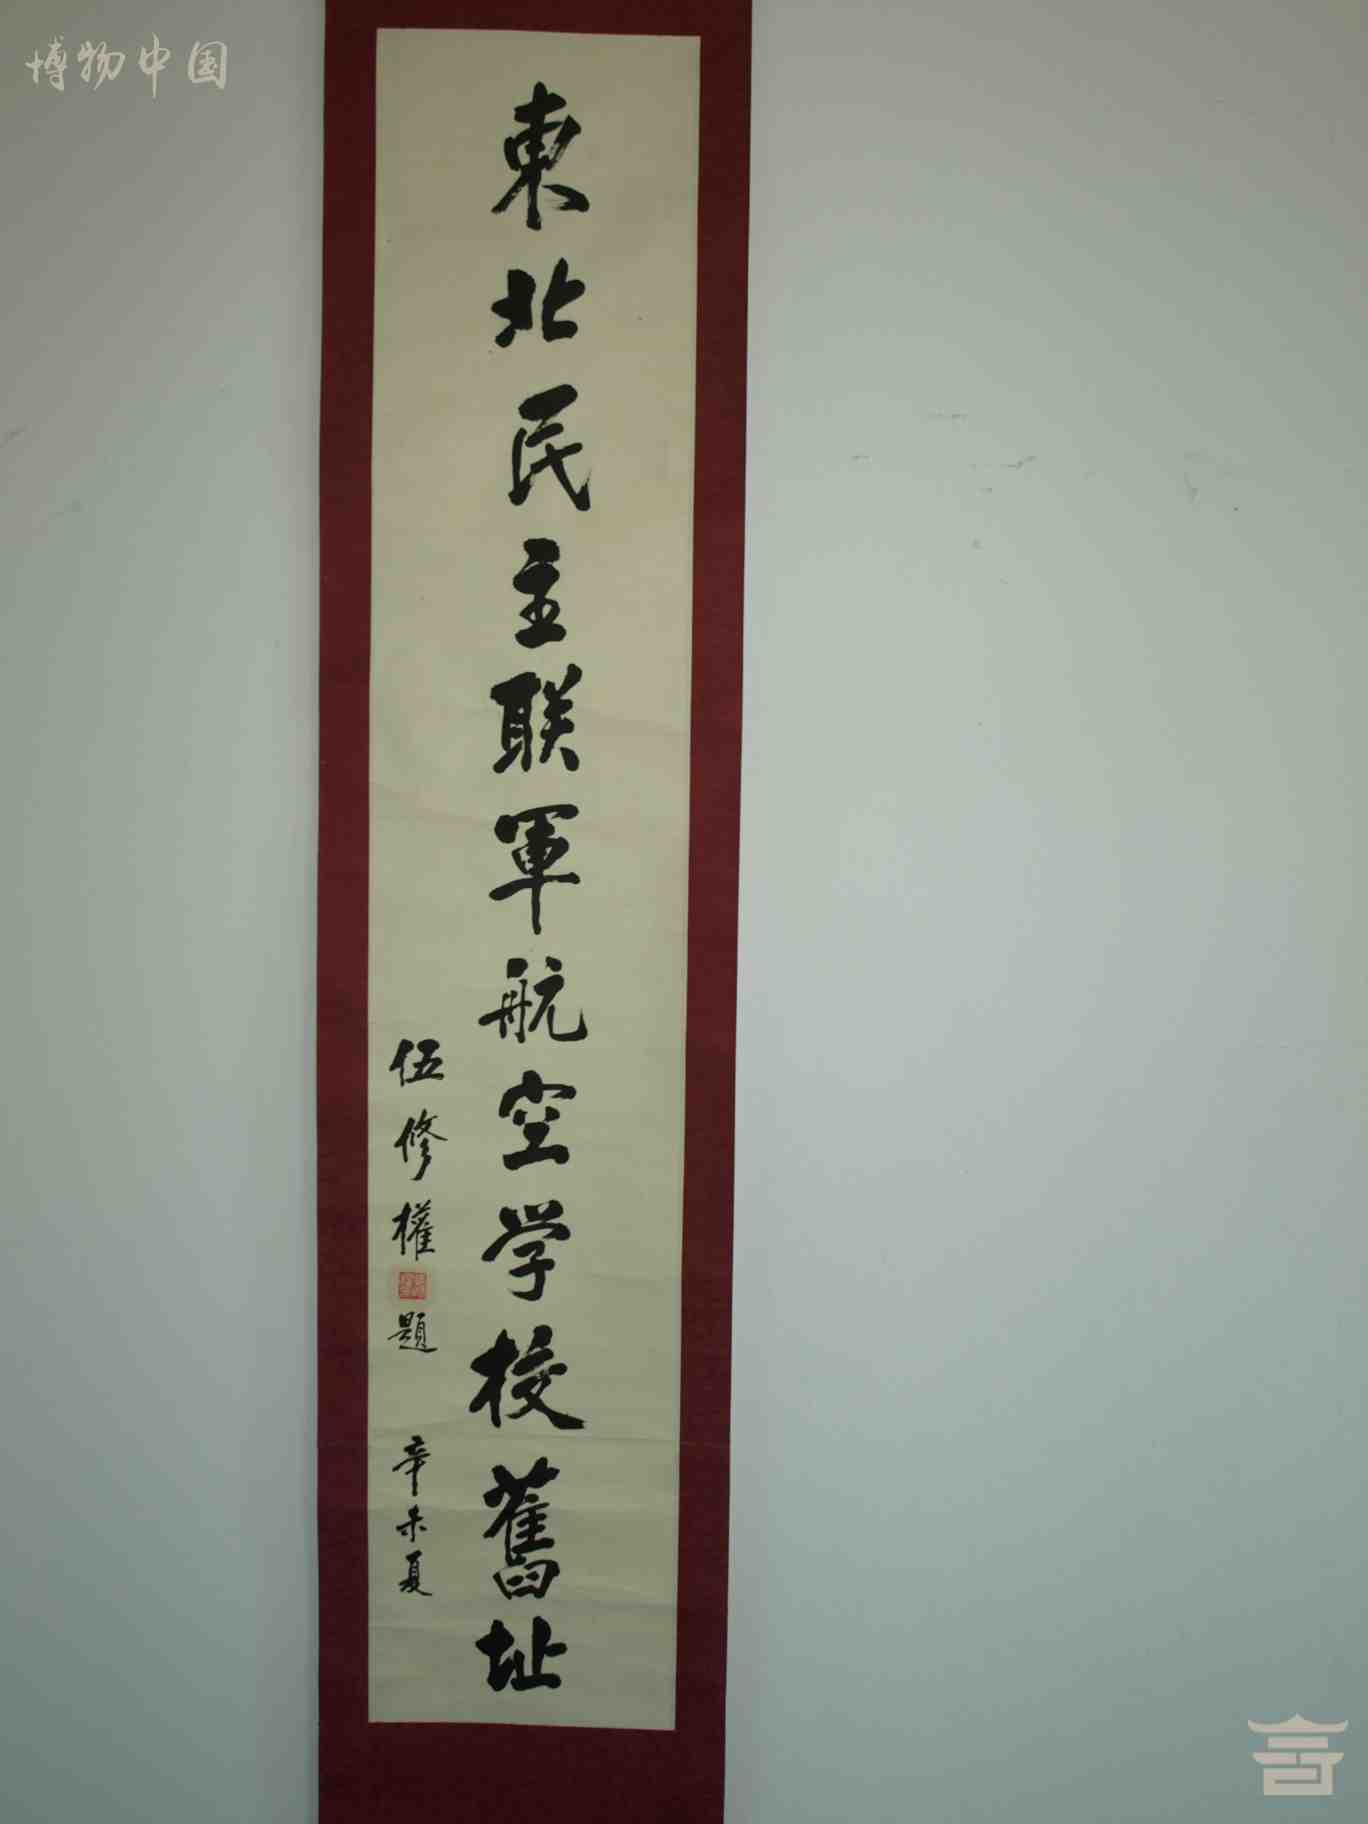 博物中国
東北民主联軍航空学校舊址
伍修權題 辛未夏